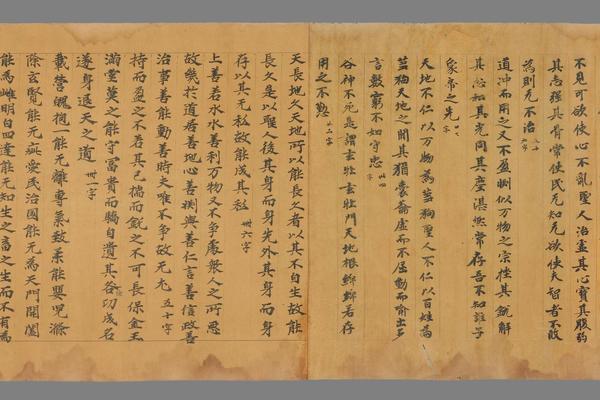 不見可欲使心不亂聖人治虛其心實其腹弱
其志强其骨常使民无知无欲使夫智者不敢
為則无不治
道冲而用之又不盈渕似万物之宗挫其銳解
其忿和其光同其塵湛然常存吾不知誰子
象帝之先
天地不仁以万物為芻狗聖人不仁以百姓為
芻狗天地之間其猶橐籥虛而不屈動而俞出多
言數窮不如守忠
谷神不死是謂玄牝玄牝門天地根綿綿若存
用之不懃
天長地久天地所以能長久者以其不自生故能
長久是以聖人後其身而身先外其身而身
存以其无私故能成其私 卌六字
上善若水水善利万物又不爭處衆人之所惡
故幾於道居善地心善渕與善仁言善信政善
治事善能動善時夫唯不爭故无尤 五十字
持而盈之不若其已揣而銳之不可長保金玉
滿堂莫之能守富貴而驕自遺其咎功成名
遂身退天之道 卌一字
載營魄抱一能无離專氣致柔能嬰兒滌
除玄覽能无疵愛民治國能无為天門開闔
能為雌明白四達能无知生之畜之生而不有為